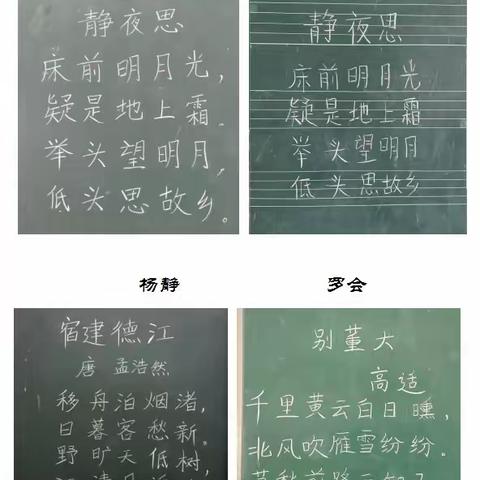 静夜思
床前明月光,
疑是地上霜.
举头望明月,
低头思故乡。
静夜思
床前明月光
疑是地上霜
举头望明月
低头思故乡
杨静
罗会
宿建德江
唐 孟浩然
移舟泊烟渚,
日暮客愁新。
野旷天低树,
别董大
高适
千里黄云白日曛,
北风吹雁雪纷纷。